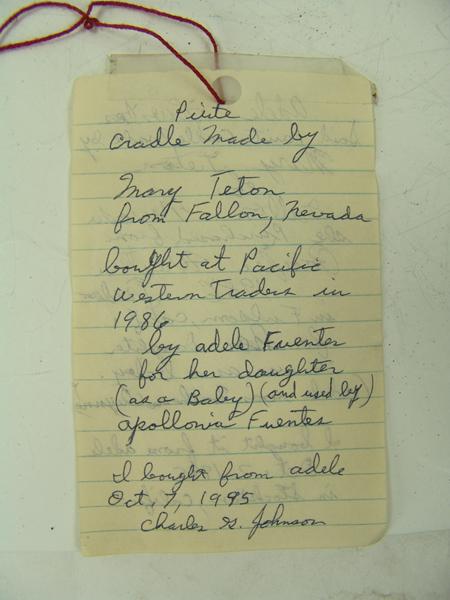 Piute
Cradle Made by
Mary Teton
from Fallon, Nevada
bought at Pacific
Western Traders in
1986
by adele Fuentes
for her daughter
(as a Baby) (and used by)
apollonia Fuentes
I bought from adele
Oct, 7, 1995
Charles G. Johnson